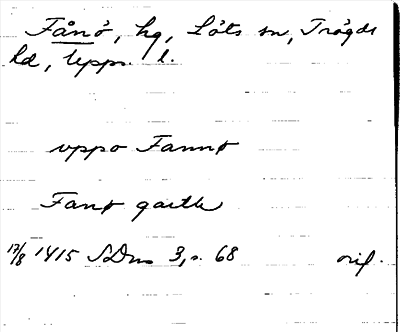 Fånö, hg, Löts sn, Trögds
hd, Upps. l.
uppo Fannø
Fanø gaelle
17/8 1415 SDns 3, s. 68 orig.